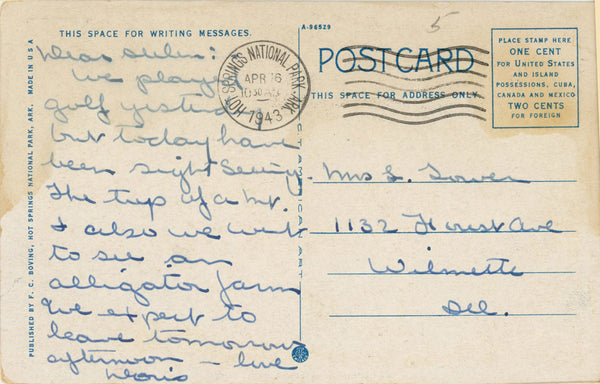 THIS SPACE FOR WRITING MESSAGES.
A-96529
5
POST CARD
THIS SPACE FOR ADDRESS ONLY.
PLACE STAMP HERE
ONE CENT
FOR UNITED STATES
AND ISLAND
POSSESSIONS, CUBA,
CANADA AND MEXICO
TWO CENTS
FOR FOREIGN
HOT SPRINGS NATIONAL PARK, ARK.
APR 16
10 30 AM
1943
Dear
We play
golf yesterday
but today have
been sight seeing.
The top of a Mt.
& also we went
to see an
alligator farm
We expect to
leave tomorrow
afternoon – love
Doris
Mrs L. Tower
1132 Forest Ave
Wilmette
Ill.
PUBLISHED BY F. C. BOVING, HOT SPRINGS NATIONAL PARK, ARK. MADE IN U S A